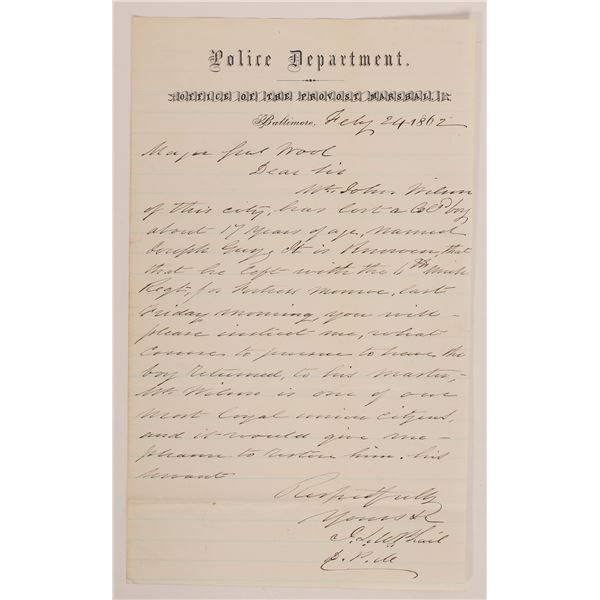 Police Department.
OFFICE OF THE PROVOST MARSHAL,
Baltimore, Feby 24 1862
Major Genl Wool
Dear Sir
Mr. John Wilson
of this city, has lost a Cold boy
about 17 years of age, named
Joseph Guy, It is Known, that
that he left with the 6th Mich
Regt, for Fortress Monroe, last
Friday morning, you will
please instruct me, what
course to pursue to have the
boy returned, to his master,
Mr Wilson is one of our
most loyal union citizens,
and it would give me
pleasure to restore him. his
servant
Respectfully
Yours &c
J. L. McPhail
D. P. M